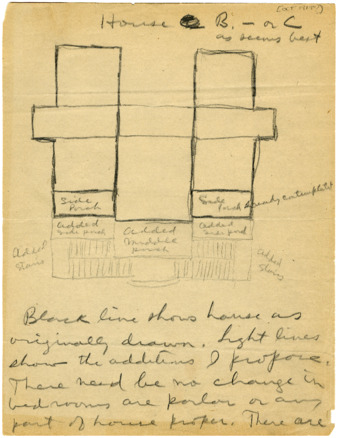 House B. - or C
as seems best
Side
Porch
Side
Porch already contemplated
added
Side porch
added
Middle
porch
added
Side porch
Added
Stairs
Added
Stairs
Black line shows house as
originally drawn. Light lines
show the additions I propose.
There need be no change in
bedrooms are parlor or any
part of house proper. There are